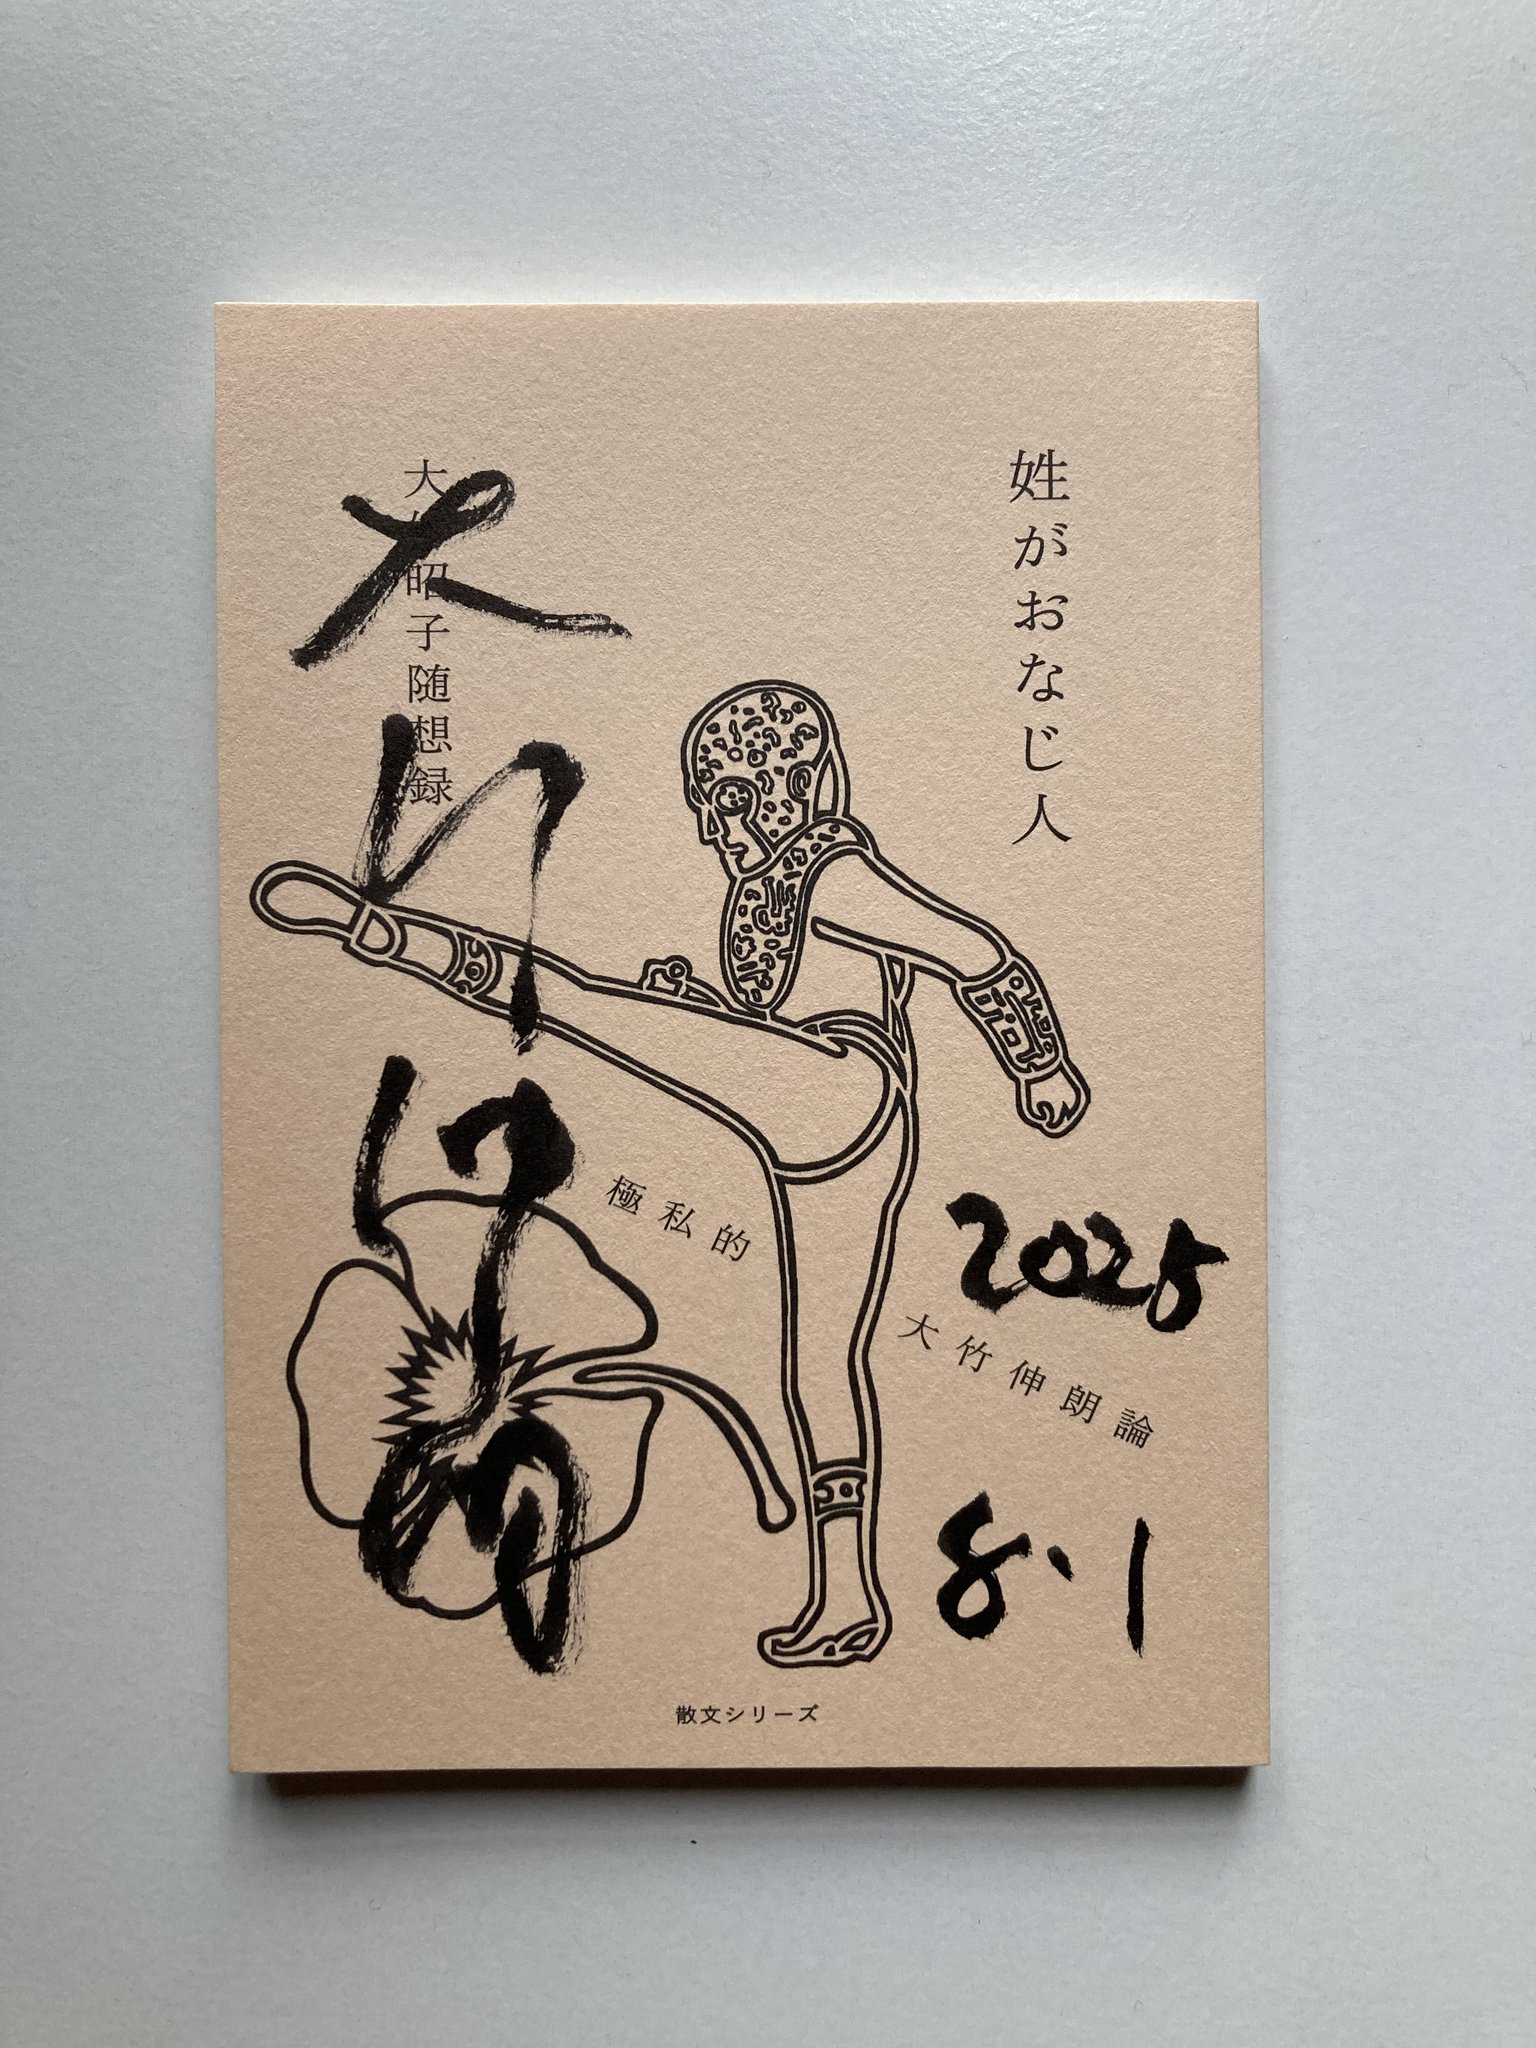 姓がおなじ人
大竹昭子随想録
極私的
大竹伸朗論
2025
8.1
散文シリーズ